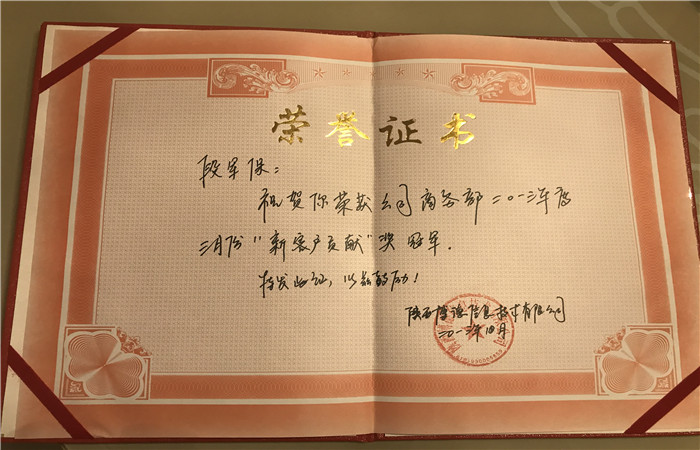 荣誉证书
段军保：
祝贺你荣获公司商务部二〇一三年度
三月份“新客户贡献”奖 冠军．
特发此证，以兹鼓励！
陕西博诚信息技术有限公司
二〇一三年四月